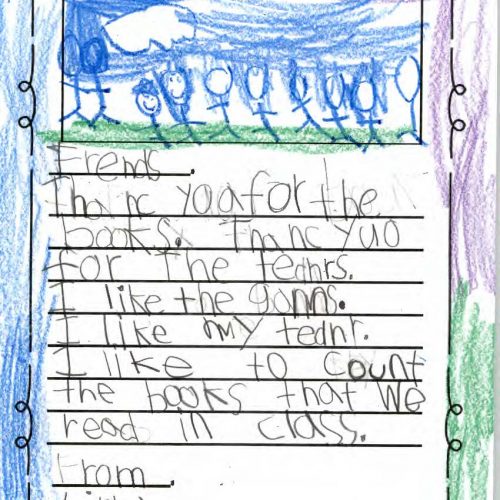 Frends.
Thanc yoa for the
books. Thanc yuo
for the teahrs.
I like the
I like my teahr.
I like to count
the books that we
read in class.
From.